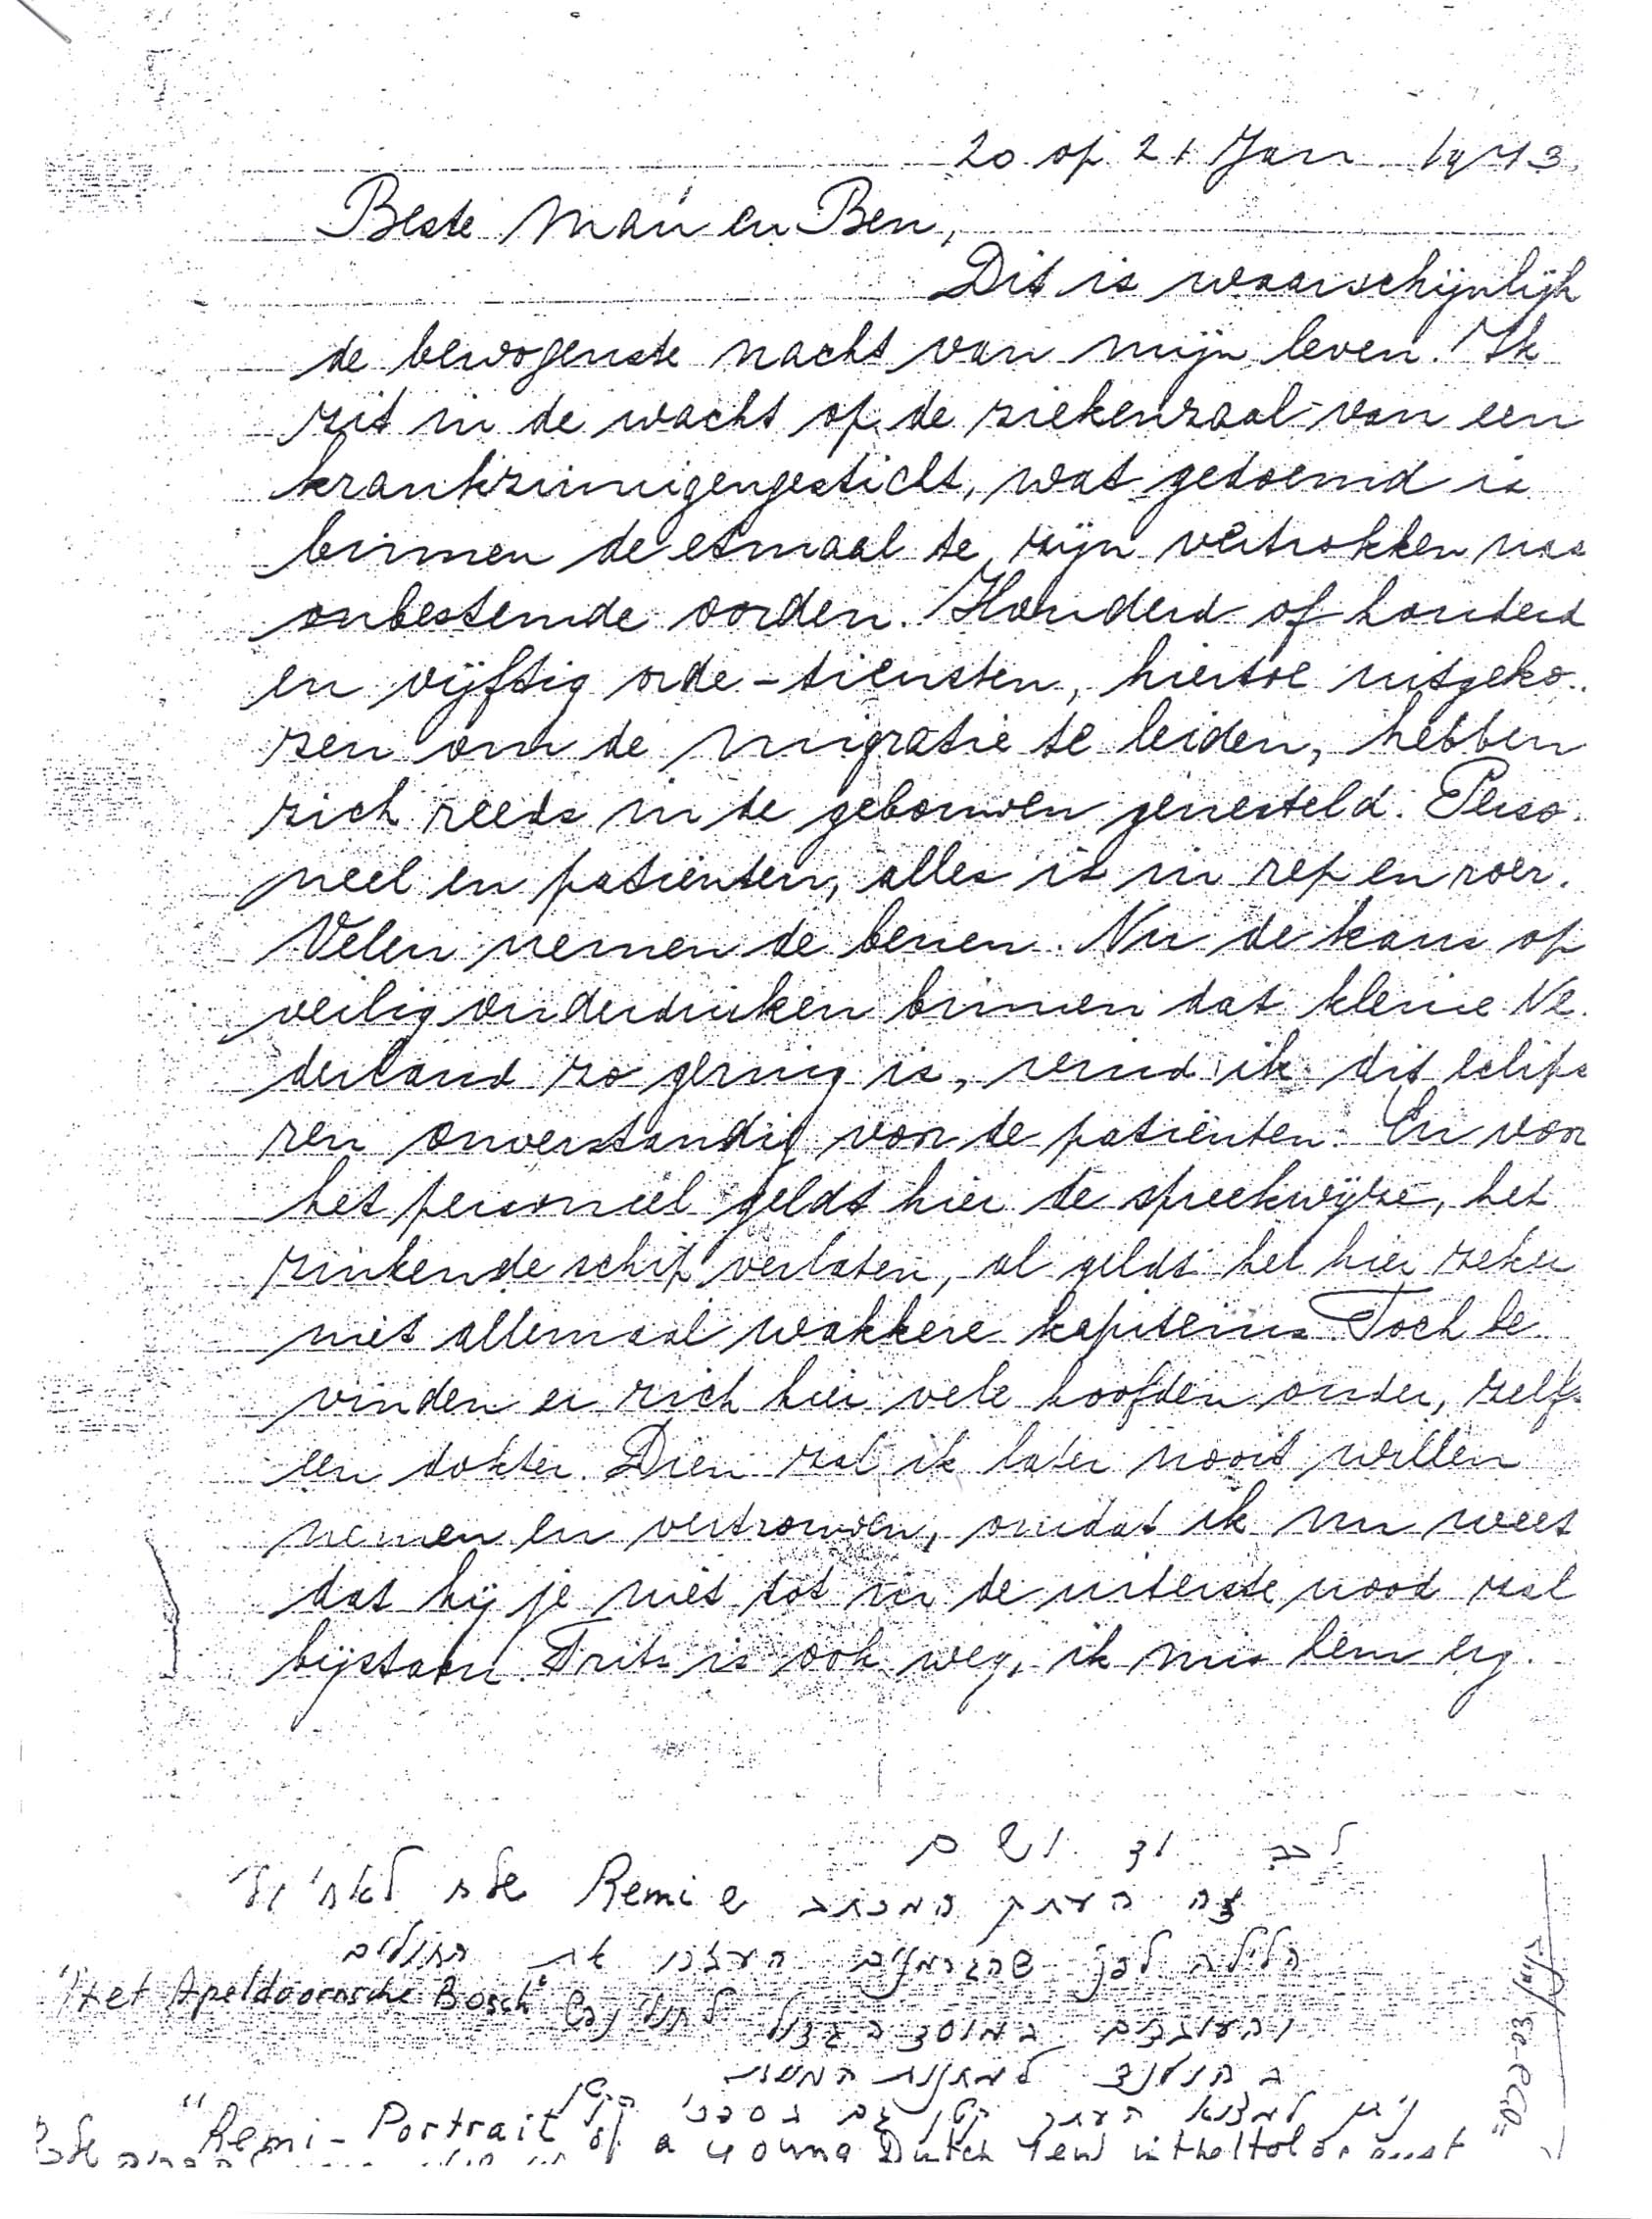 20 op 21 Jan 1943.
Beste Mau en Ben,
Dit is waarschijnlijk
de bewogenste nacht van mijn leven. Ik
zit in de wacht op de ziekenzaal van een
krankzinnigengesticht, wat gedoemd is
binnen de etmaal te zijn vertrokken naa
onbestemde oorden. Honderd of honderd
en vijftig orde-diensten, hiertoe uitgeko-
zen om de migratie te leiden, hebben
zich reeds in de gebouwen genesteld. Perso-
neel en patienten, alles is in rep en roer.
Velen nemen de benen. Nu de kans op
veilig onderduiken binnen dat kleine Ne-
derland zo gering is, vind ik dit eclips
ren onverstandig voor de patiënten. En voor
het personeel geldt hier de spreekwijze, het
zinkende schip verlaten, al geldt het hier zeker
niet allemaal wakkere kapiteins. Toch be
vinden er zich hier vele hoofden onder, zelfs
een dokter. Dien zal ik later nooit willen
nemen en vertrouwen, omdat ik nu weet
dat hij je niet tot in de uiterste nood zal
bijstaan. Frits is ook weg, ik mis hem erg.
לכב' יד ושם
זה העתק המכתב ש Remi שלח לאחיו
הלילה לפני שהגרמנים העבירו את החולים
והעובדים במוסד הגדול לחולי נפש "Het Apeldoornsche Bosch"
בהולנד למחנות המוות
ניתן למצוא העתק קטן גם בספרי הקטן
"Remi - Portrait of a young Dutch Jew in the